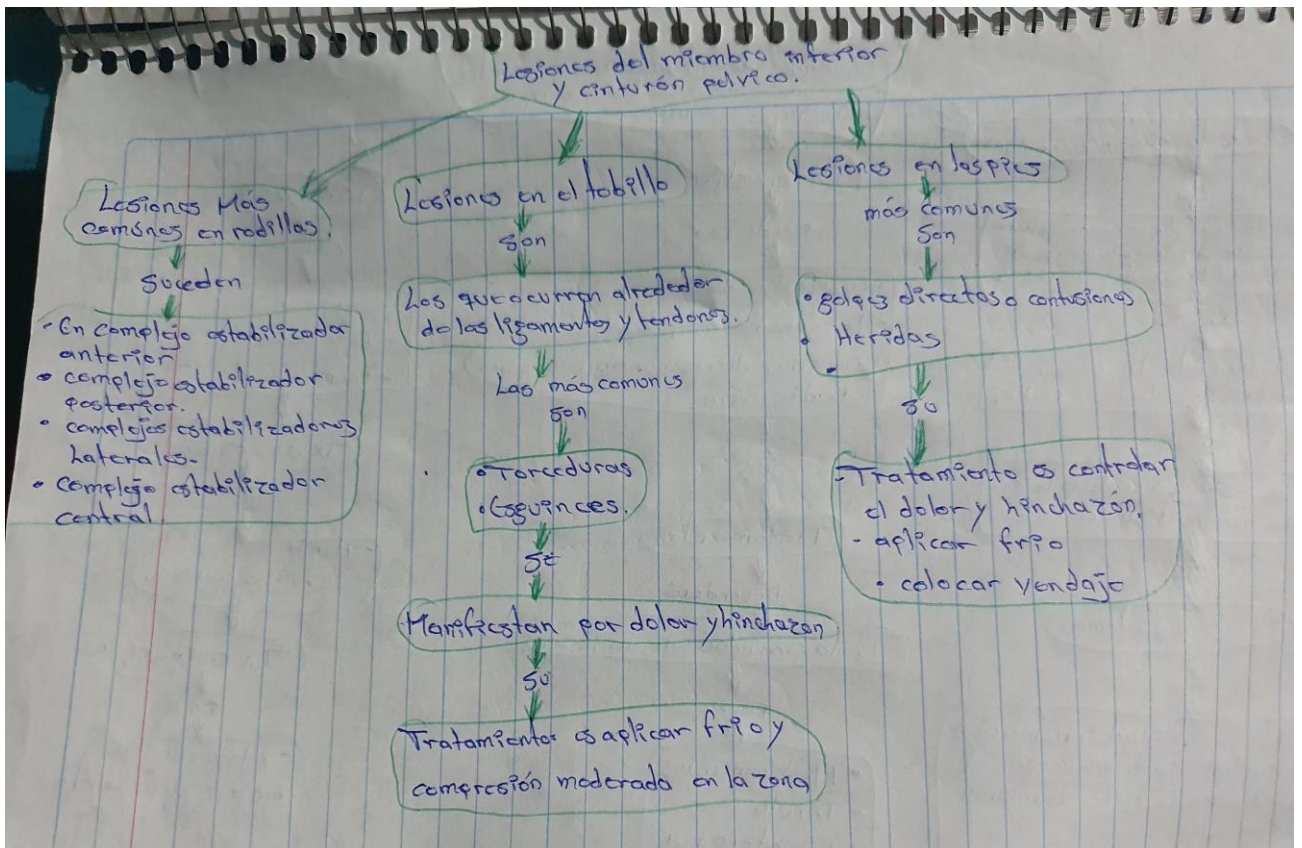 Lesiones del miembro inferior
y cinturón pelvico.
Lesiones Más
comúnes en rodillas.
Suceden
- En complejo estabilizador
anterior
• complejo estabilizador
posterior.
• complejos estabilizadores
Laterales.
• complejo estabilizador
central
Lesiones en el tobillo
son
Los que ocurren alrededor
de los ligamentos y tendones.
Las más comúnes
son
• Torceduras
• Esguinces.
se
Manifiestan por dolor y hinchazon
su
Tratamiento es aplicar frio y
compresión moderada en la zona
Lesiones en los pies
más comunes
Son
• golpes directos o contusiones
• Heridas
•
su
- Tratamiento es controlar
el dolor y hinchazón.
- aplicar frio
• colocar vendaje